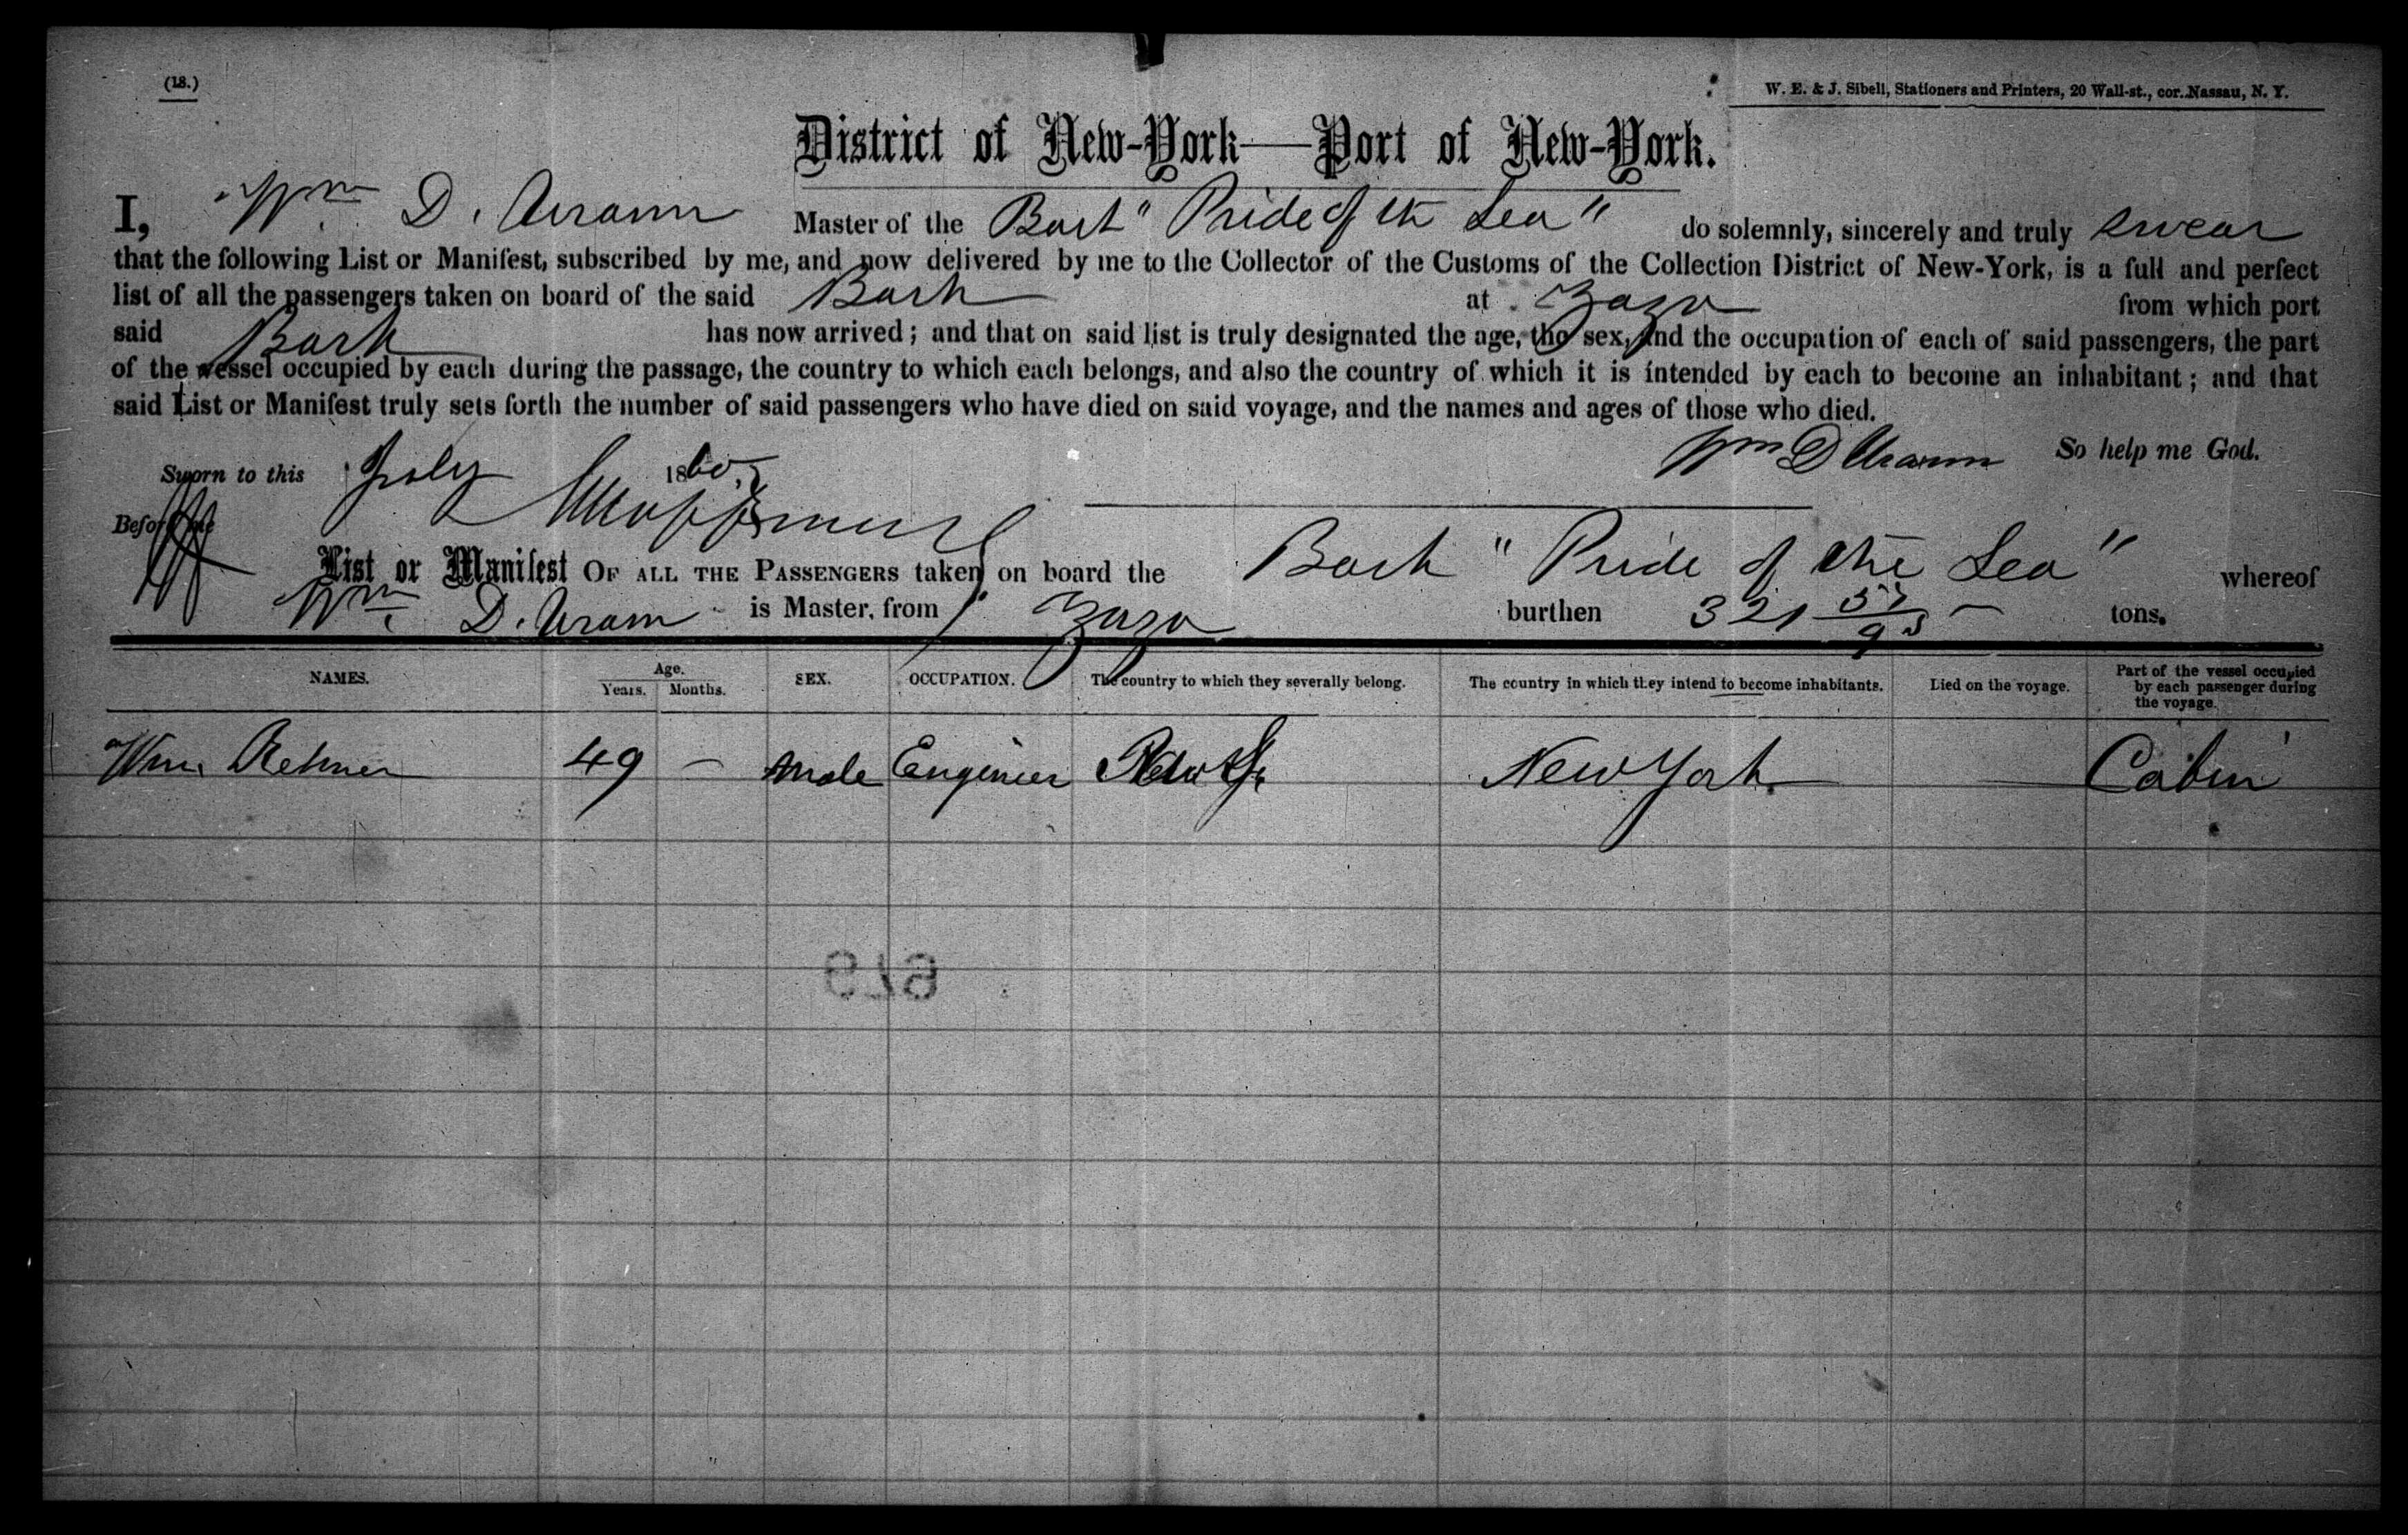 (18.)
W. E. & J. Sibell, Stationers and Printers, 20 Wall-st., cor. Nassau, N. Y.
District of New-York—Port of New-York.
I, Wm D. Master of the Bark "Pride of the Sea" do solemnly, sincerely and truly swear
that the following List or Manifest, subscribed by me, and now delivered by me to the Collector of the Customs of the Collection District of New-York, is a full and perfect
list of all the passengers taken on board of the said Bark at Zaza from which port
said Bark has now arrived; and that on said list is truly designated the age, the sex, and the occupation of each of said passengers, the part
of the vessel occupied by each during the passage, the country to which each belongs, and also the country of which it is intended by each to become an inhabitant; and that
said List or Manifest truly sets forth the number of said passengers who have died on said voyage, and the names and ages of those who died.
Sworn to this July 1860, Wm D So help me God.
Before me
List or Manifest OF ALL THE PASSENGERS taken on board the Bark "Pride of the Sea" whereof
Wm D. is Master, from Zaza burthen 321 57/95 tons.
NAMES. Age. Years. Months. SEX. OCCUPATION. The country to which they severally belong. The country in which they intend to become inhabitants. Died on the voyage. Part of the vessel occupied by each passenger during the voyage.
Wm. 49 — Male Engineer New York Cabin
679